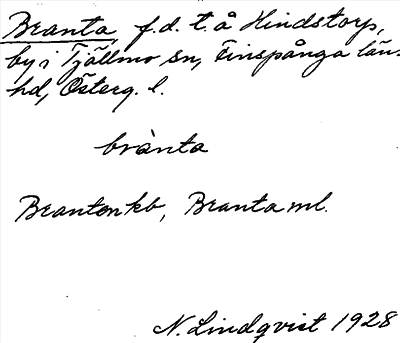 Branta, f.d. t. å Hindstorp,
by i Tjällmo sn, Finspånga län-
hd, Österg. l.
brànta
Branten kb, Branta ml.
N. Lindqvist 1928